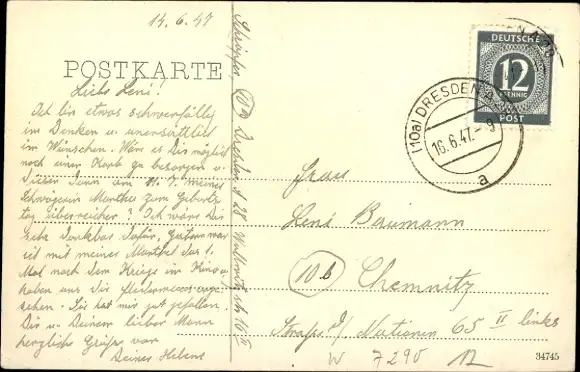 14.6.47
POSTKARTE
Liebe Leni!
Ich bin etwas schwerfällig
im Denken u. unersättlich
im Wünschen. Wäre es Dir möglich
noch einen Korb zu besorgen u.
diesen dann am 11.7. meiner
Schwägerin Marthel zum Geburts
tag überreichen? Ich wäre Dir
sehr dankbar dafür. Gestern war
ich mit meiner Marthel das 1.
Mal nach dem Kriege im Kino u.
haben uns die Fledermaus
sehen. Sie hat mir gut gefallen.
Dir u. Deinem lieben Mann
herzliche Grüße von
Deiner Helene
(10a) Dresden A 28
10 II
DEUTSCHE
12
PFENNIG
POST
(10a) DRESDEN
16.6.47.- 9
a
Frau
Leni Baumann
10b Chemnitz
Straße d/ Nationen 65 II links
W 7290 12
34745